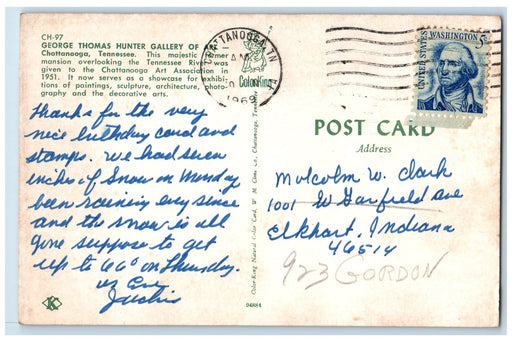 CH-97
GEORGE THOMAS HUNTER GALLERY OF ART
Chattanooga, Tennessee. This majestic former
mansion overlooking the Tennessee River was
given to the Chattanooga Art Association in
1951. It now serves as a showcase for exhibi-
tions of paintings, sculpture, architecture, photo-
graphy and the decorative arts.
Thanks for the very
nice birthday card and
stamps. We had seven
inches of snow on Monday
been raining ever since
and the snow is all
gone suppose to get
up to 66° on Thursday.
K
Color-King Natural Color Card, W. M. Cline Co., Chattanooga, Tennessee
94884
CHATTANOOGA, TN
AM
1969
ColorKing
UNITED STATES
WASHINGTON 5c
POST CARD
Address
Malcolm W. Clark
1001 W Garfield Ave
Elkhart, Indiana
46514
923 GORDON